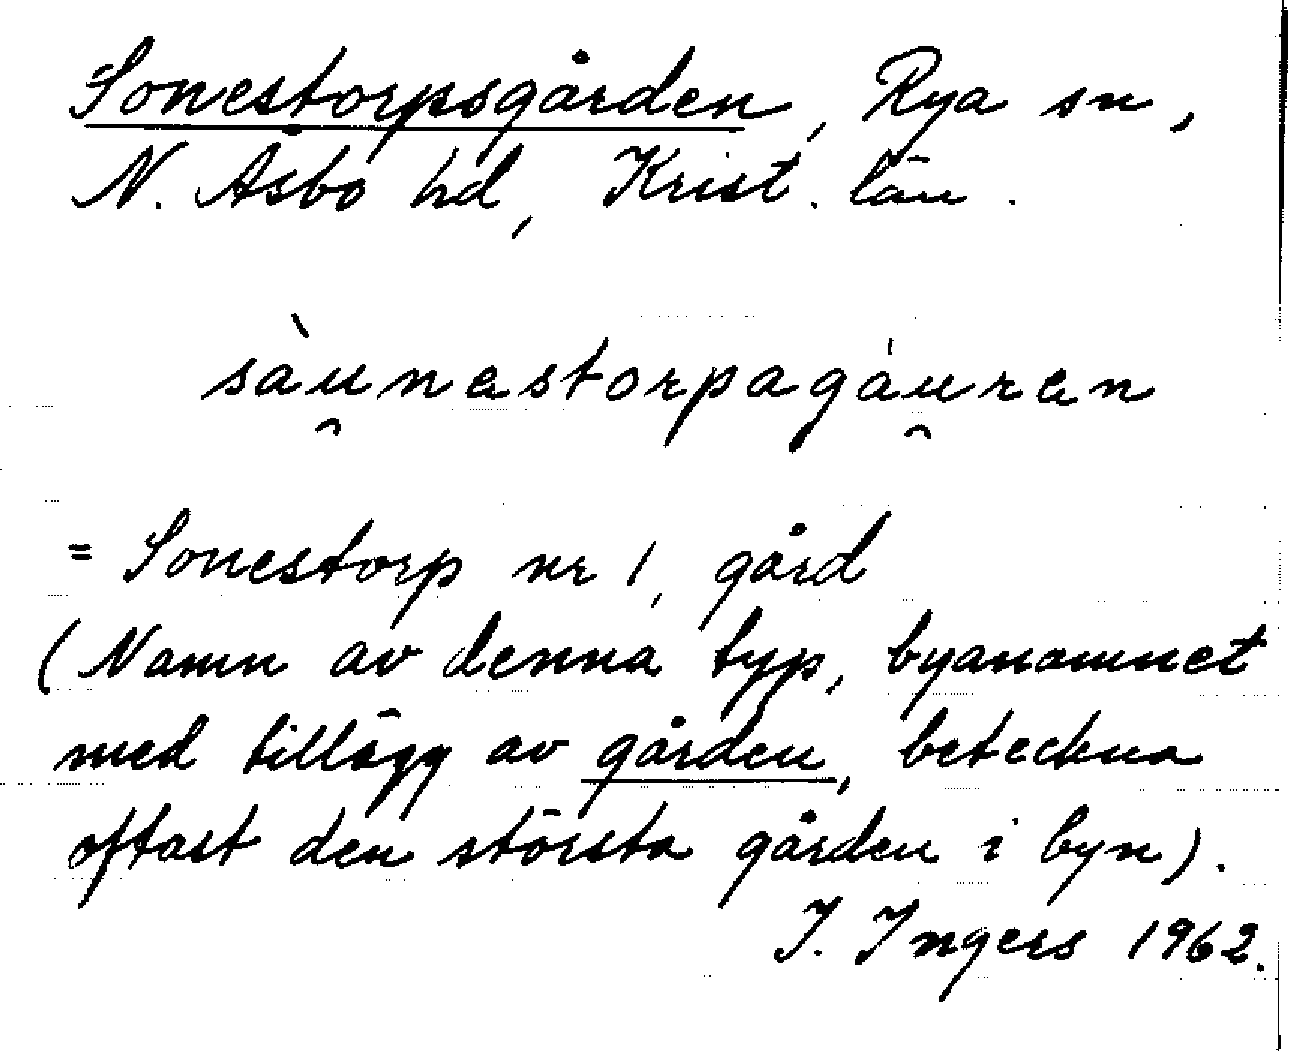 Sonestorpsgården, Rya sn,
N. Åsbo hd, Krist. län.
sàu̯nestorpagáu̯ren
= Sonestorp nr 1, gård
(Namn av denna typ, byanamnet
med tillägg av gården, beteckna
oftast den största gården i byn).
I. Ingers 1962.